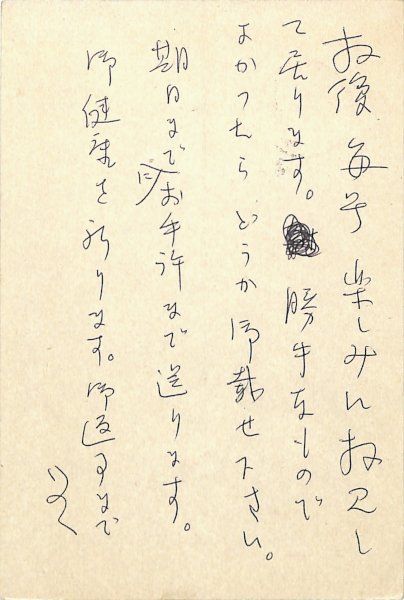 拝復 毎号 楽しみに拝見し
て居ります。勝手なもので
よかつたらどうか御載せ下さい。
期日までにお手許まで送ります。
御健康を祈ります。御返事まで